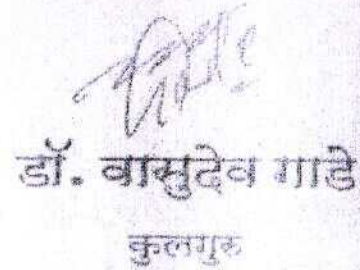 डॉ. वासुदेव गाडे
कुलगुरु